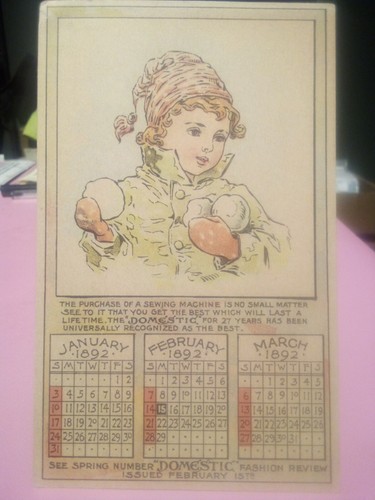 THE PURCHASE OF A SEWING MACHINE IS NO SMALL MATTER
SEE TO IT THAT YOU GET THE BEST WHICH WILL LAST A
LIFETIME. THE "DOMESTIC" FOR 27 YEARS HAS BEEN
UNIVERSALLY RECOGNIZED AS THE BEST.
JANUARY
1892
S M T W T F S
1 2
3 4 5 6 7 8 9
10 11 12 13 14 15 16
17 18 19 20 21 22 23
24 25 26 27 28 29 30
31
FEBRUARY
1892
S M T W T F S
1 2 3 4 5 6
7 8 9 10 11 12 13
14 15 16 17 18 19 20
21 22 23 24 25 26 27
28 29
MARCH
1892
S M T W T F S
1 2 3 4 5
6 7 8 9 10 11 12
13 14 15 16 17 18 19
20 21 22 23 24 25 26
27 28 29 30 31
SEE SPRING NUMBER "DOMESTIC" FASHION REVIEW
ISSUED FEBRUARY 15TH